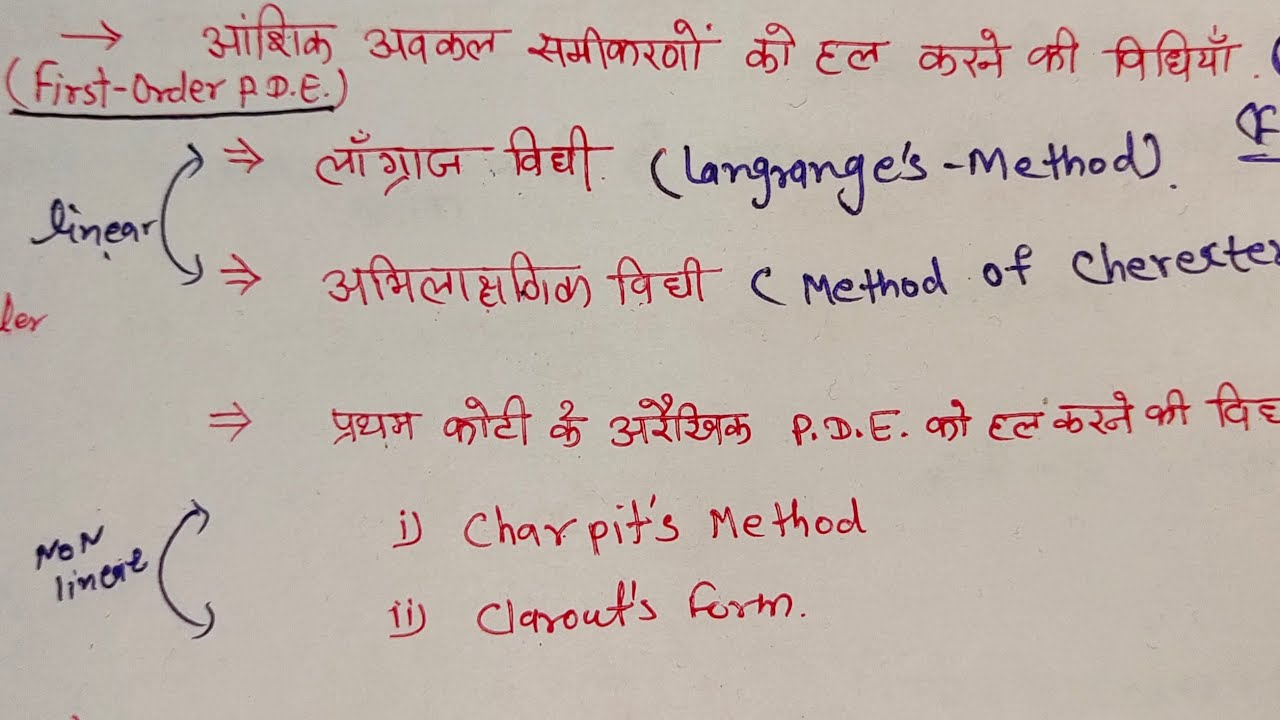 → आंशिक अवकल समीकरणों को हल करने की विधियाँ.
(First-Order P.D.E.)
⇒ लाँग्राज विधी (Langrange's-Method).
linear
⇒ अभिलाक्षणिक विधी (Method of Cherecter
ler
⇒ प्रथम कोटी के अरैखिक P.D.E. को हल करने की विध
NON
i) Charpit's Method
ii) Clarout's form.